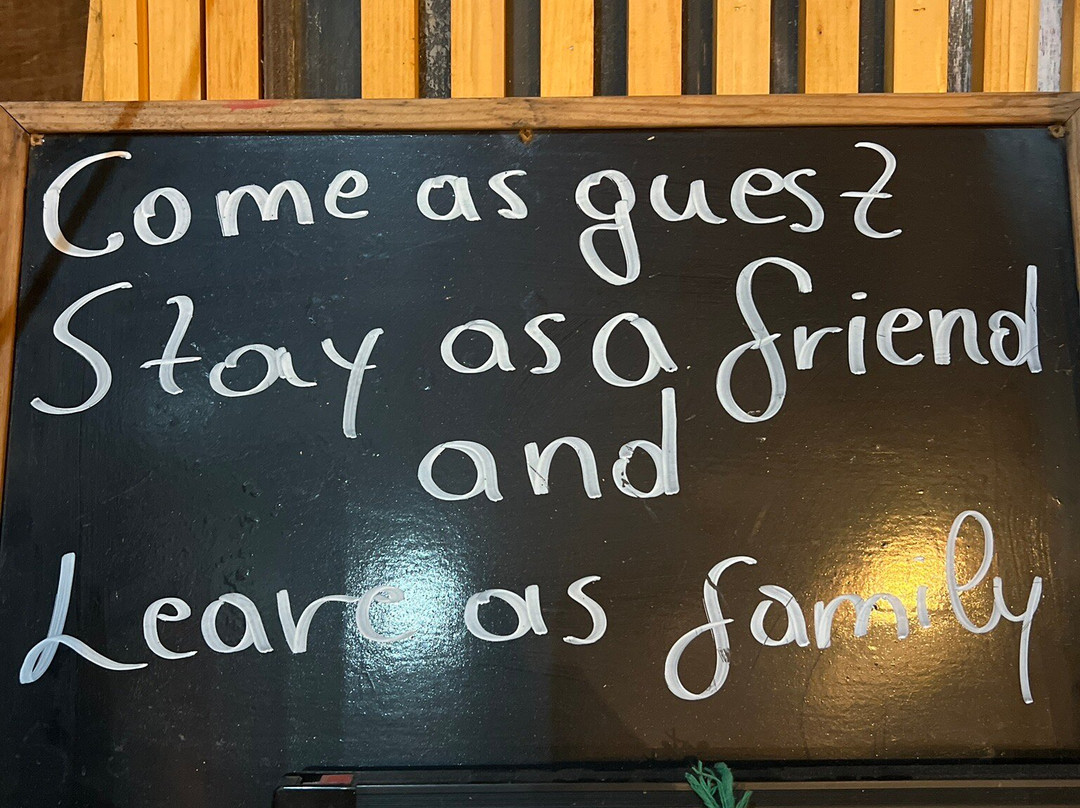 Come as guest
Stay as a friend
and
Leave as family